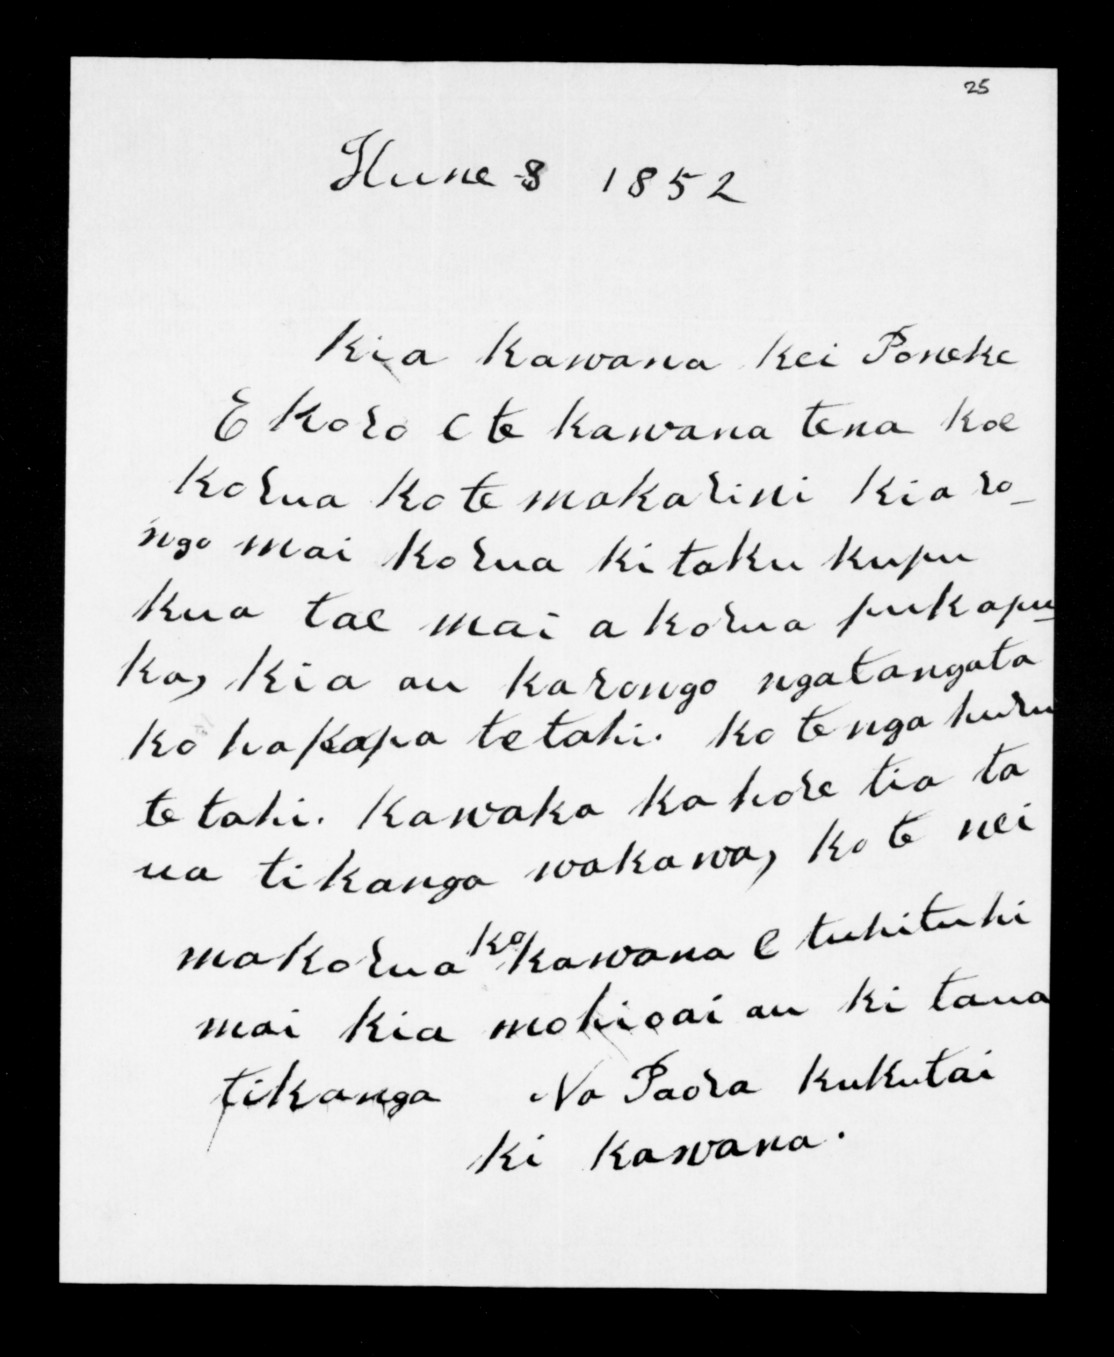 25
Hune 8 1852
Kia Kawana kei Poneke
E Koro E te kawana tena koe
Korua ko te makarini kia ro_
ngo mai korua ki taku kupu
kua tae mai a korua pukapu_
ka, kia au karongo ngatangata
ko hakapa te tahi. ko te nga huru
te tahi. kawaka ka hore tia ta
ua tikanga wakawa, ko te nei
makorua ko kawana E tuhituhi
mai kia mohioai au ki taua
tikanga Na Paora kukutai
ki kawana.